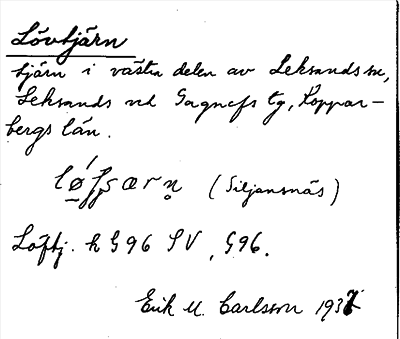 Lövtjärn
tjärn i västra delen av Leksands sn,
Leksands och Gagnefs tg, Koppar-
bergs län.
(Siljansnäs)
Löftj. k G96 SV, G96.
Erik M. Carlsson 1937